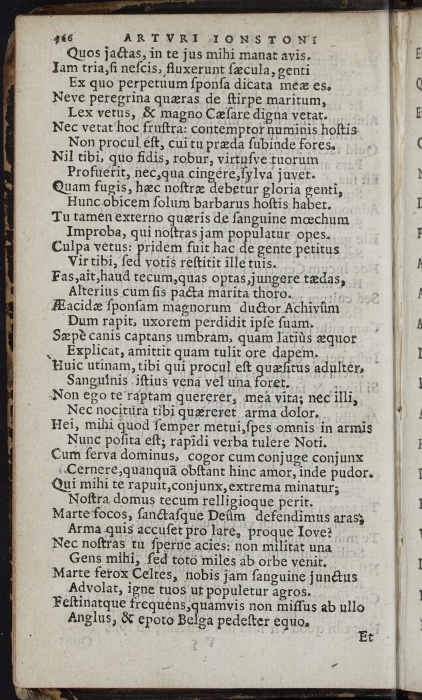 466 ARTVRI IONSTONI
Quos jactas, in te jus mihi manat avis.
Iam tria, si nescis, fluxerunt sæcula, genti
Ex quo perpetuum sponsa dicata meæ es.
Neve peregrina quæras de stirpe maritum,
Lex vetus, & magno Cæsare digna vetat.
Nec vetat hoc frustra: contemptor numinis hostis
Non procul est, cui tu præda subinde fores.
Nil tibi, quo fidis, robur, virtusve tuorum
Profuerit, nec, qua cingere, sylva juvet.
Quam fugis, hæc nostræ debetur gloria genti,
Hunc obicem solum barbarus hostis habet.
Tu tamen externo quæris de sanguine mœchum
Improba, qui nostras jam populatur opes.
Culpa vetus: pridem fuit hac de gente petitus
Vir tibi, sed votis restitit ille tuis.
Fas, ait, haud tecum, quas optas, jungere tædas,
Alterius cum sis pacta marita thoro.
Æacidæ sponsam magnorum ductor Achivûm
Dum rapit, uxorem perdidit ipse suam.
Sæpè canis captans umbram, quam latiùs æquor
Explicat, amittit quam tulit ore dapem.
Huic utinam, tibi qui procul est quæsitus adulter,
Sanguinis istius vena vel una foret.
Non ego te raptam quererer, mea vita; nec illi,
Nec nocitura tibi quæreret arma dolor.
Hei, mihi quod semper metui, spes omnis in armis
Nunc posita est; rapidi verba tulere Noti.
Cum serva dominus, cogor cum conjuge conjunx
Cernere, quanquã obstant hinc amor, inde pudor.
Qui mihi te rapuit, conjunx, extrema minatur;
Nostra domus tecum relligioque perit.
Marte focos, sanctasque Deûm defendimus aras;
Arma quis accuset pro lare, proque Iove?
Nec nostras tu sperne acies: non militat una
Gens mihi, sed toto miles ab orbe venit.
Marte ferox Celtes, nobis jam sanguine junctus
Advolat, igne tuos ut populetur agros.
Festinatque frequens, quamvis non missus ab ullo
Anglus, & epoto Belga pedester equo.
Et